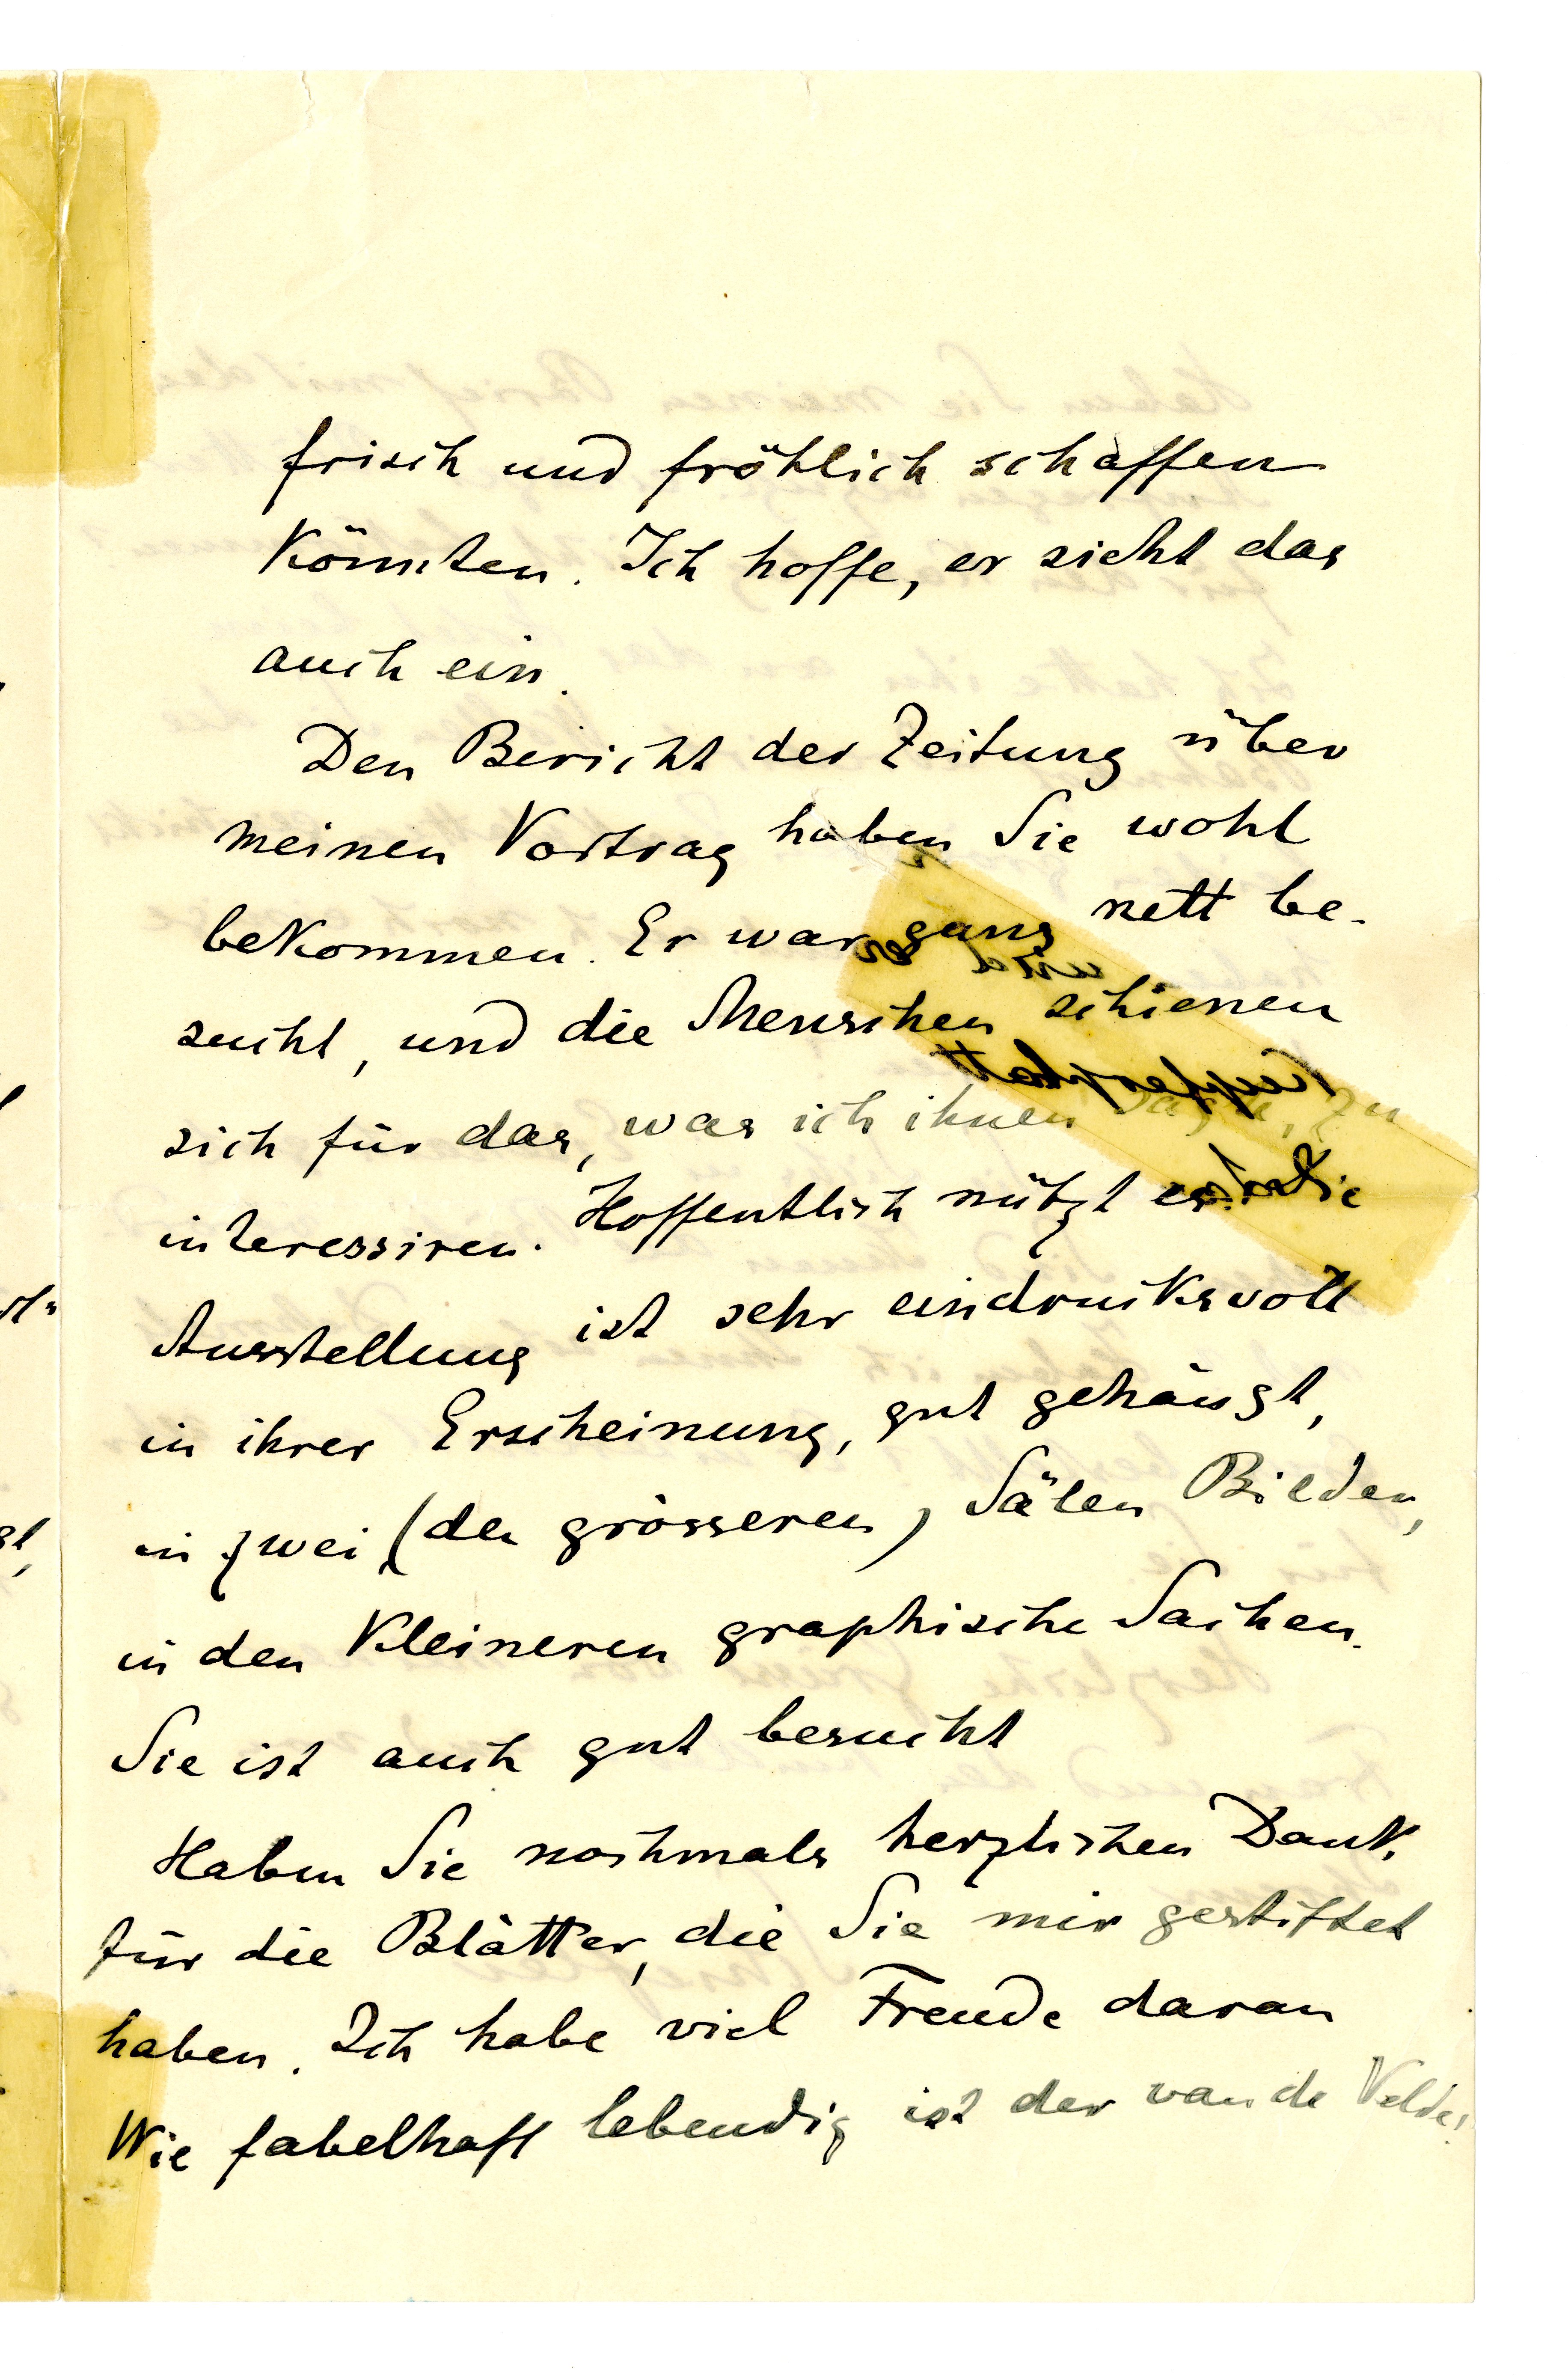 frisch und fröhlich schaffen
könnten. Ich hoffe, er sieht das
auch ein.
Den Bericht der Zeitung über
meinen Vortrag haben Sie wohl
bekommen. Er war ganz nett be-
sucht, und die Menschen schienen
sich für das, was ich ihnen sagte, zu
interessiren. Hoffentlich nützt es. Die
Ausstellung ist sehr eindrucksvoll
in ihrer Erscheinung, gut gehängt,
in zwei (den grösseren) Sälen Bilder,
in den kleineren graphische Sachen.
Sie ist auch gut besucht
Haben Sie nochmals herzlichen Dank,
für die Blätter, die Sie mir gestiftet
haben. Ich habe viel Freude daran
Wie fabelhaft lebendig ist der van de Velde!